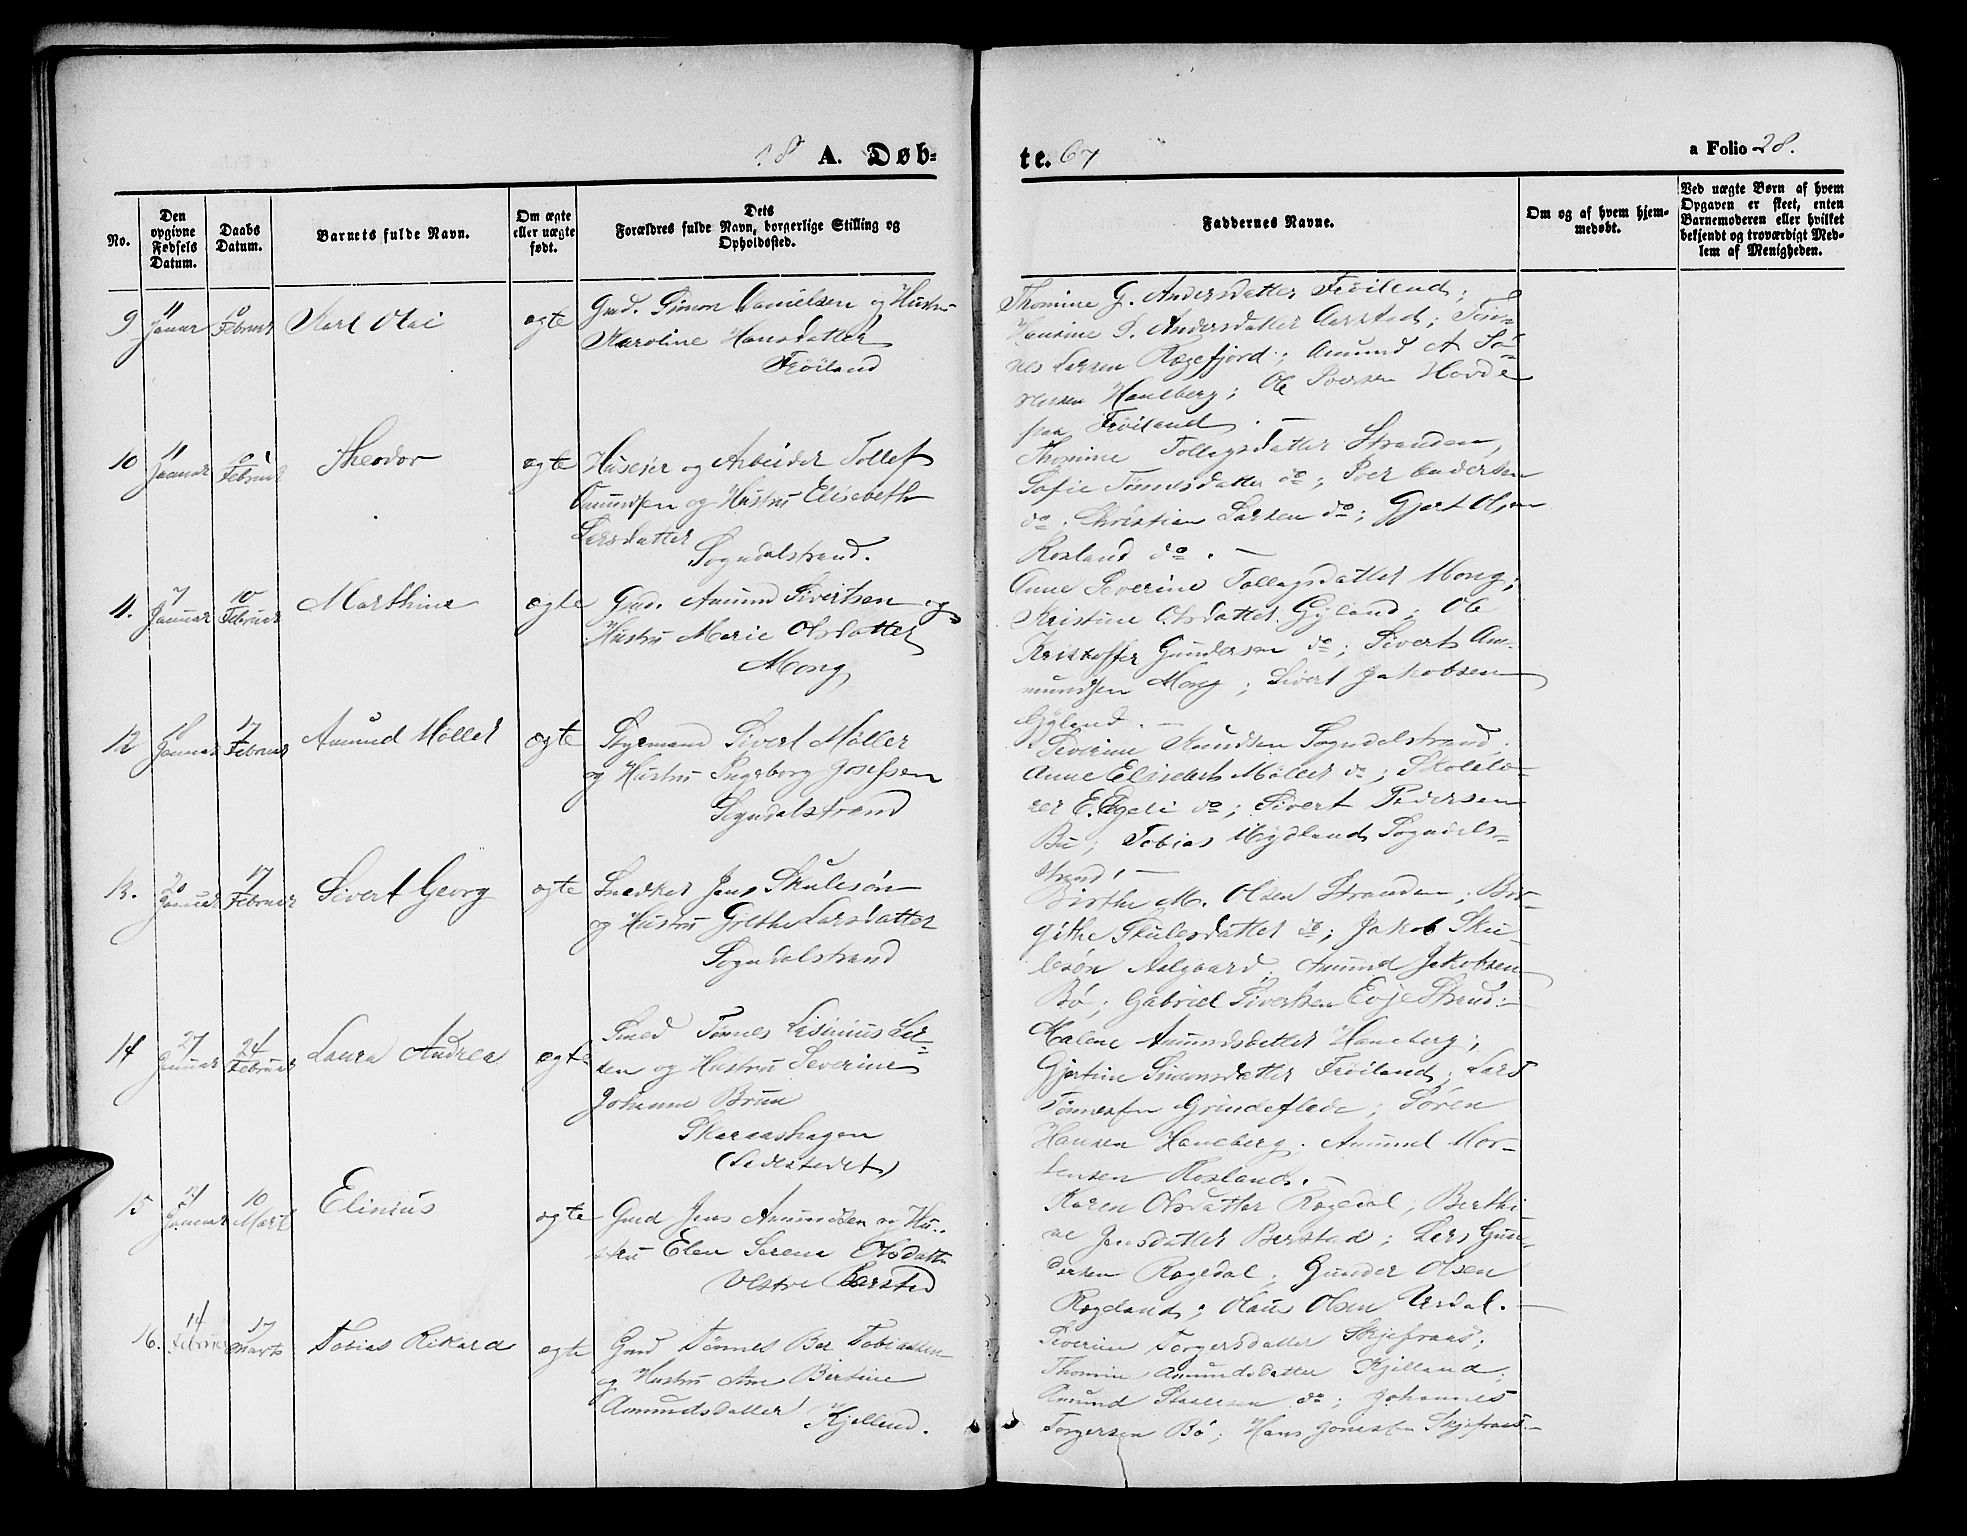 18 A. Døb-
te. 67
a Folio 28.
No.
Den opgivne Fødsels Datum.
Daabs Datum.
Barnets fulde Navn.
Om ægte eller uægte født.
Dets Forældres fulde Navn, borgerlige Stilling og Opholdssted.
Faddernes Navne.
Om og af hvem hjem-
medøbt.
Ved uægte Børn af hvem
Opgaven er skeet, enten
Barnemoderen eller hvilket
bekjendt og troværdigt Med-
lem af Menigheden.
9 11 Januar 10 Februar Karl Olai ægte Gmd. Simon Danielsen og Hustru
Karoline Hansdatter
Frøiland
Thomine G. Andersdatter Frøiland;
Hansine D. Andersdatter Aarstad; Tøn-
nes Larsen Rægefjord; Amund A Sø-
rensen Haneberg; Ole Hovde
paa Frøiland. —
10 11 Januar Februar Theodor ægte Huseier og Arbeider Tollef
Amundsen og Hustru Elisabeth
Larsdatter
Sogndalstrand.
Thomine Tollagsdatter Stranden,
Sofie Tønnesdatter do; Peer Andersen
do. Christian Larsen do; Gjert Olsen
Rosland do. —
11. 7 Januar 10 Februar Marthine ægte Gmd. Amund Sivertsen og
Hustru Marie Olsdatter
Mong
Anne Severine Tollagsdatter Mong;
Kristine Olsdatter Gyland; Ole
Kristoffer Gundersen do; Sivert Am-
mundsen Mong; Sivert Jakobsen
Gyland. —
12 16 Januar 17 Februar Amund Møller ægte Styrmand Sivert Møller
og Hustru Ingeborg Josefsen
Sogndalstrand
Severine Knudsen Sogndalstrand;
Anne Elisabeth Møller do; Skolelæ-
rer E. Egeli do; Sivert Pedersen
Bu; Tobias Mydland Sogndals-
strand. —
13. 20 Januar 17 Februar Sivert Georg ægte Snedker Jens Skulesøn
og Hustru Grethe Larsdatter
Sogndalstrand
Birthe M. Olsen Stranden; Bir-
githe Skulesdatter do; Jakob Sku-
lesøn Aalgaard; Amund Jakobsen
Bø; Gabriel Sivertsen Evje Strand. —
14 27 Januar 24 Februar Laura Andrea ægte Smed Tønnes Lisinius Lar-
sen og Hustru Severine
Johanne Bruu
Skaraashagen
(Ladestedet)
Malene Amundsdatter Haneberg;
Gjertine Simonsdatter Frøiland; Lars
Tønnessen Grindeflade; Søren
Hansen Haneberg. Amund Mor-
tensen Rosland. —
15 21 Januar 10 Marts Elinius ægte Gmd Jens Amundsen og Hu-
stru Elen Serena Olsdatter
Vestre Barstad
Karen Olsdatter Rægedal; Berthi-
ne Jensdatter Berstad; Lars Gun-
dersen Rægedal; Gunder Olsen
Rogeland; Olaus Olsen Urdal. —
16. 14 Februar 17 Marts Tobias Rikard ægte Gmd Tønnes Ber Tobiassen
og Hustru Ane Bertine
Amundsdatter Kjelland.
Severine Torgersdatter Skjefraas;
Thomine Amundsdatter Kjelland;
Amund Stalesen do; Johannes
Torgersen Bø; Hans Jonassen Skjefraas. —